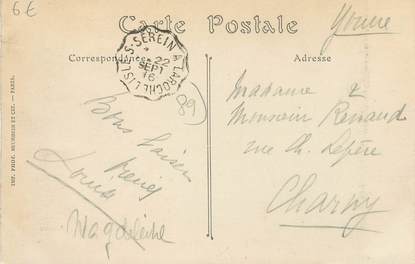 6€
Carte Postale
Yonne
Correspondance
Adresse
L'ISLE-S-SEREIN A LAROCHE
22
SEPT
16
(89)
Bons baisers
Louise
Magdeleine
Madame &
Monsieur Renaud
rue Ch. Lepère
Charny
IMP. PHOT. NEURDEIN ET CIE. — PARIS.